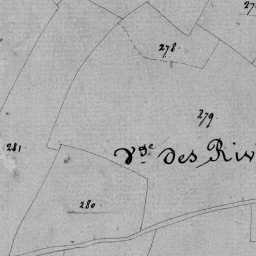 278
279
281
V.ge des Riv
280